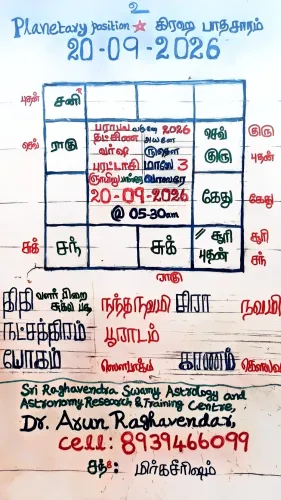 உ
Planetary position ☆ கிரஹ பாதசாரம்
20-09-2026
புதன் சனி
பராபவ வருஷ 2026
செவ் ராகு தட்சிண அயனம் செவ் குரு
வர்ஷ ருதௌ குரு புதன்
புரட்டாசி மாஸே 3
20-09-2026 கேது கேது
@ 05-30am
சுக் சந் சுக் // சூரி சூரி
புதன் சந்
ராகு
திதி வளர் பிறை சுக்ல பக்ஷ நந்தநவமி சிரா நவமி
நட்சத்திரம் பூராடம்
யோகம் ஸௌபாக்ய கரணம் கௌலவ
Sri Raghavendra Swamy Astrology and
Astronomy Research & Training Centre,
Dr. Arun Raghavendar,
cell: 8939466099
சந்: மிர்கசீரிஷம்